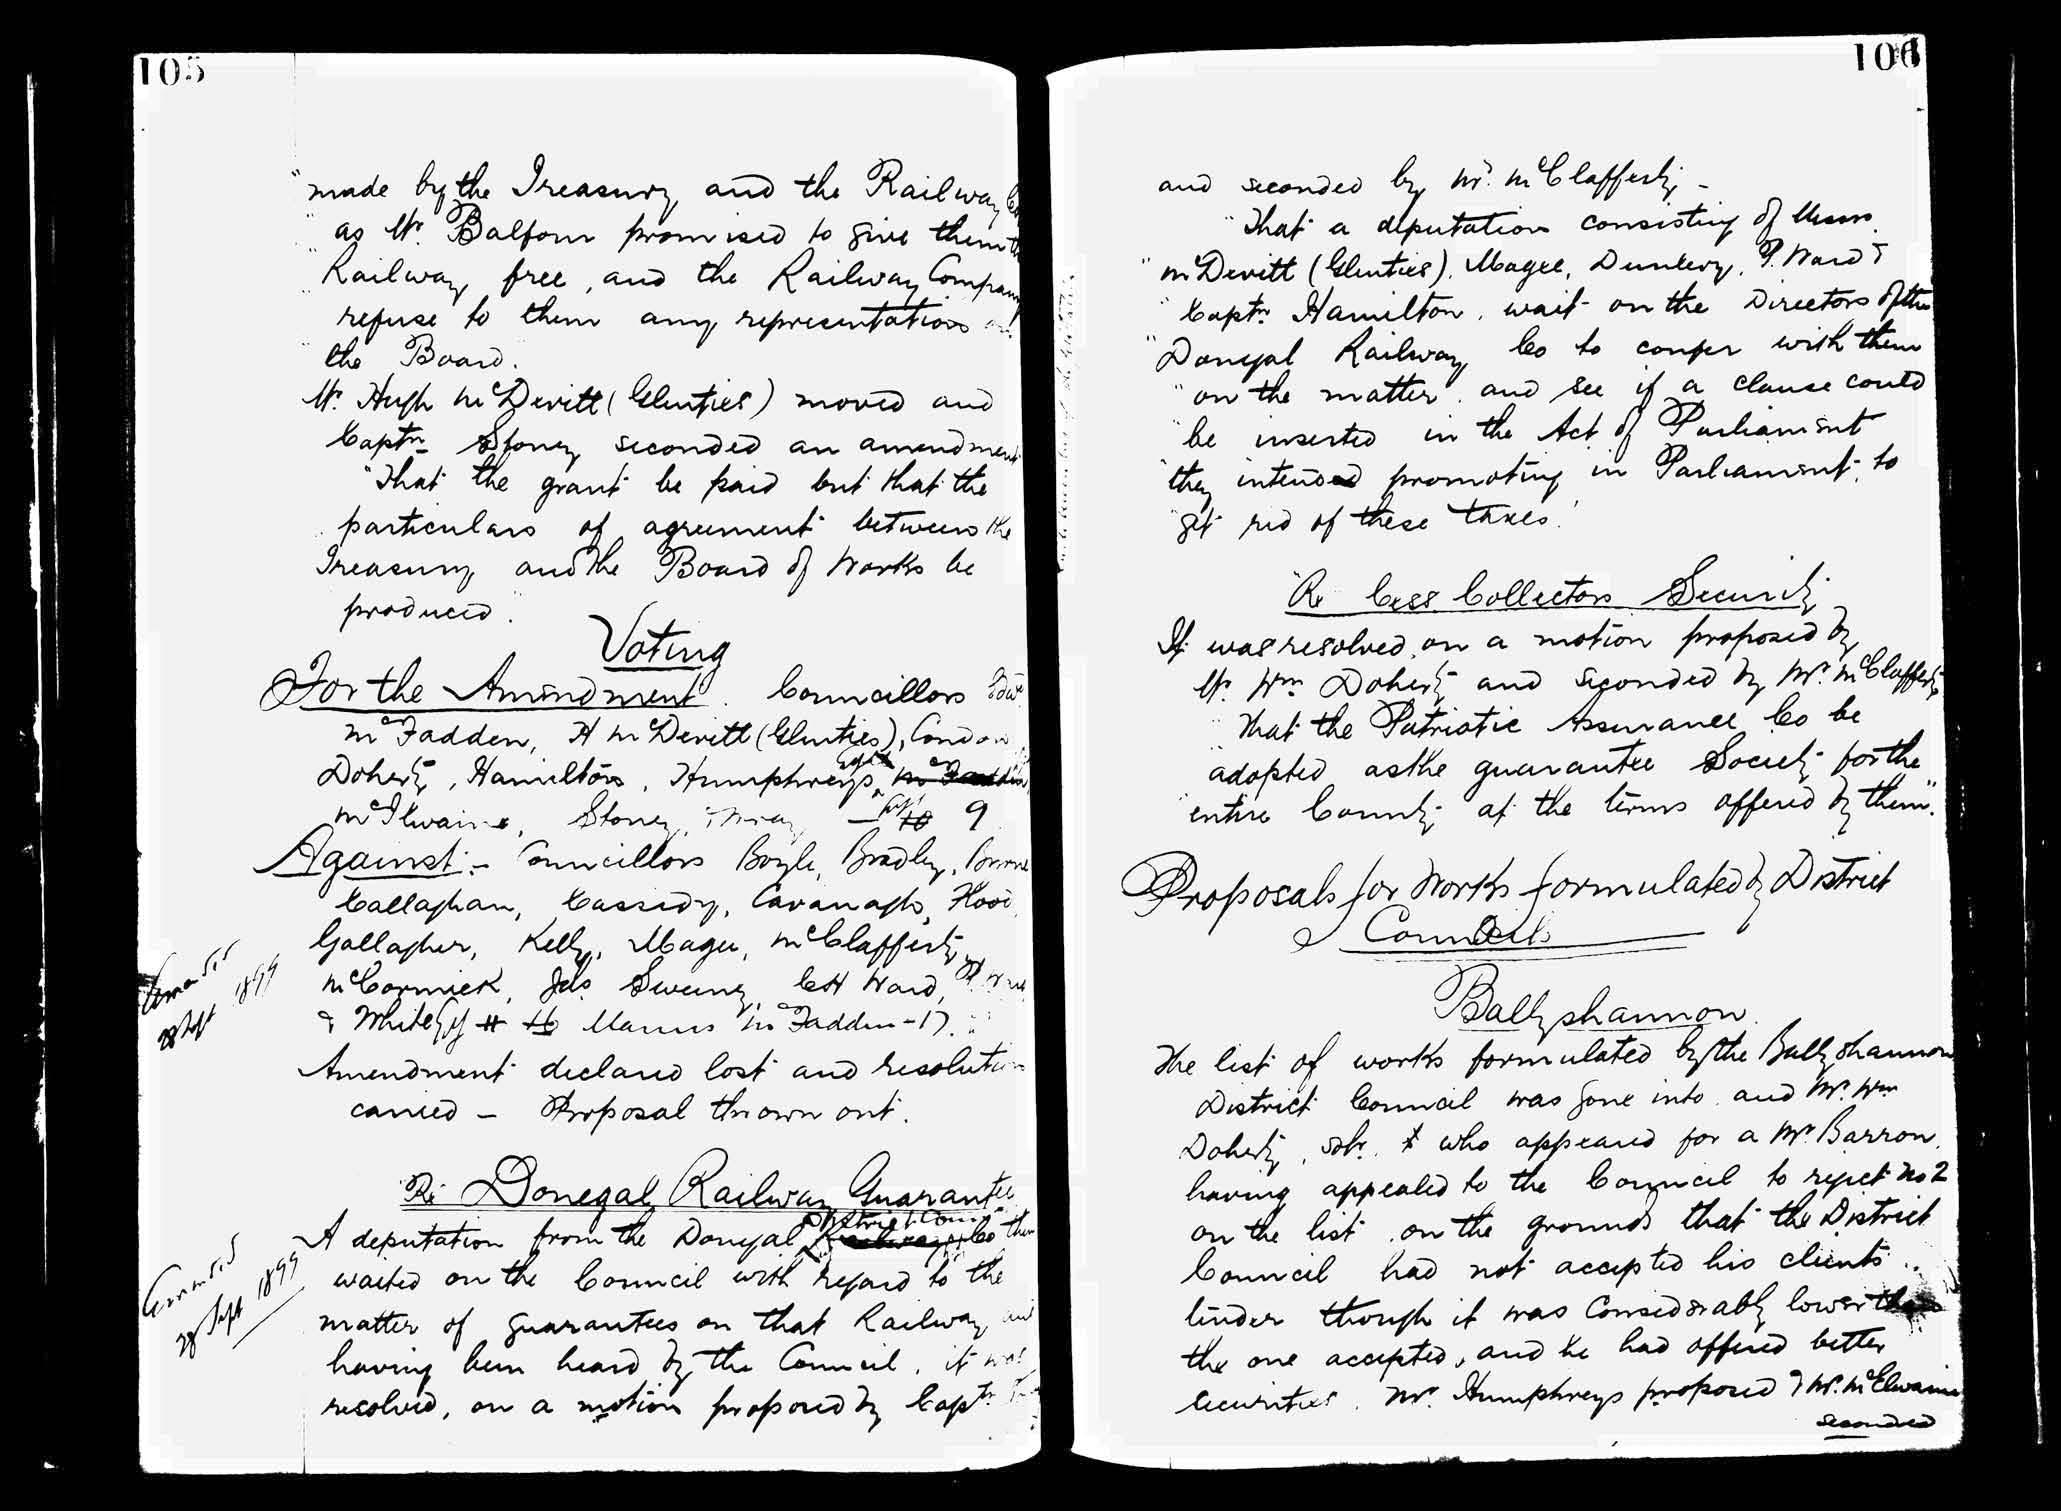 105
"made by the Treasury and the Railway Co
" as Mr. Balfour promised to give them the
" Railway free, and the Railway Company
refuse to them any representation on
" the Board.
Mr. Hugh McDevitt (Glenties) moved and
Captn Stoney seconded an amendment
"That the grant be paid but that the
particulars of agreement between the
Treasury and the Board of Works be
produced".
Voting
For the Amendment. Councillors Edwd
McFadden, H McDevitt (Glenties), Condon
Doherty, Hamilton, Humphreys,
McIlwaine, Stoney, 10 9
Against:- Councillors Boyle, Bradley, Byrne
Callaghan, Cassidy, Cavanagh, Flood,
Gallagher, Kelly, Magee, McClafferty,
McCormick, Jas. Sweeny, CH Ward,
& White Manus McFadden - 17.
Amended
28 Sept 1899
Amendment declared lost and resolution
carried - Proposal thrown out.
Re Donegal Railway Guarantee
District Council
A deputation from the Donegal Railway Co then
waited on the Council with regard to the
matter of guarantees on that Railway and
having been heard by the Council, it was
resolved, on a motion proposed by Captn
Amended
28 Sept 1899
106
and seconded by Mr. McClafferty -
"That a deputation consisting of Messrs
" McDevitt (Glenties), Magee, Dunlevy, P. Ward &
" Captn. Hamilton, wait on the Directors of the
" Donegal Railway Co to confer with them
" on the matter and see if a clause could
" be inserted in the Act of Parliament
" they intended promoting in Parliament, to
" get rid of these taxes."
Re Cess Collectors Security
It was resolved, on a motion proposed by
Mr. Wm Doherty and seconded by Mr. McClafferty
" That the Patriotic Assurance Co be
" adopted as the guarantee Society for the
" entire County at the terms offered by them".
Proposals for Works formulated by District
Councils
Ballyshannon
The list of works formulated by the Ballyshannon
District Council was gone into and Mr. Wm
Doherty, solr. who appeared for a Mr. Barron,
having appealed to the Council to reject No 2
on the list, on the grounds that the District
Council had not accepted his clients
tender though it was considerably lower than
the one accepted, and he had offered better
securities. Mr. Humphreys proposed & Mr. McElwaine
seconded